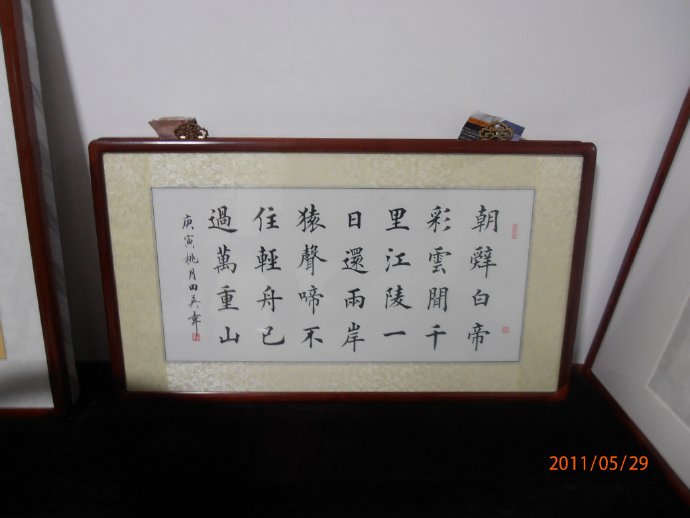 朝辤白帝
彩雲間千
里江陵一
日還兩岸
猿聲啼不
住輕舟已
過萬重山
庚寅桃月田英章
2011/05/29